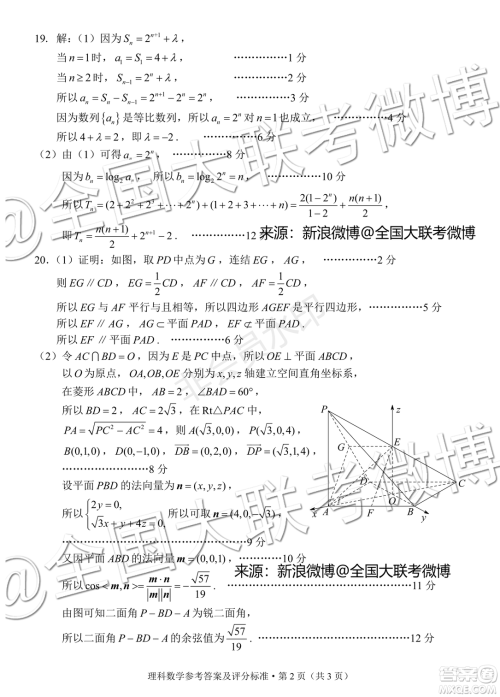 19. 解：（1）因为 Sₙ = 2ⁿ⁺¹ + λ，
当 n = 1 时，a₁ = S₁ = 4 + λ，……………1分
当 n ≥ 2 时，Sₙ₋₁ = 2ⁿ + λ，……………2分
所以 aₙ = Sₙ − Sₙ₋₁ = 2ⁿ⁺¹ − 2ⁿ = 2ⁿ，……………3分
因为数列 {aₙ} 是等比数列，所以 aₙ = 2ⁿ 对 n = 1 也成立，……………4分
所以 4 + λ = 2，即 λ = −2．……………6分
（2）由（1）可得 aₙ = 2ⁿ，……………8分
因为 bₙ = log₂ aₙ，所以 bₙ = log₂ 2ⁿ = n，……………10分
所以 Tₙ = (2 + 2² + 2³ + ⋯ + 2ⁿ) + (1 + 2 + 3 + ⋯ + n) = 2(1 − 2ⁿ)/(1 − 2) + n(n+1)/2，
即 Tₙ = n(n+1)/2 + 2ⁿ⁺¹ − 2．……………12
来源：新浪微博@全国大联考微博
20.（1）证明：如图，取 PD 中点为 G，连结 EG，AG，……………2分
则 EG∥CD，EG = 1/2 CD，AF∥CD，AF = 1/2 CD，
所以 EG 与 AF 平行与且相等，所以四边形 AGEF 是平行四边形，……………5分
所以 EF∥AG，AG⊂平面 PAD，EF⊄平面 PAD，
所以 EF∥平面 PAD．……………6分
（2）令 AC∩BD = O，因为 E 是 PC 中点，所以 OE⊥平面 ABCD，
以 O 为原点，OA,OB,OE 分别为 x,y,z 轴建立空间直角坐标系，
在菱形 ABCD 中，AB = 2，∠BAD = 60°，
所以 BD = 2，AC = 2√3，在 Rt△PAC 中，
PA = √(PC² − AC²) = 4，则 A(√3,0,0)，P(√3,0,4)，
B(0,1,0)，D(0,−1,0)，DB = (0,2,0)，DP = (√3,1,4)，
……………8分
设平面 PBD 的法向量为 n = (x, y, z)，
所以 { 2y = 0, √3x + y + 4z = 0, 所以可取 n = (4,0,−√3)，
……………9分
又因平面 ABD 的法向量 m = (0,0,1)，……………10分
来源：新浪微博@全国大联考微博
所以 cos<m,n> = m·n/|m||n| = −√57/19．……………11分
由图可知二面角 P − BD − A 为锐二面角，
所以二面角 P − BD − A 的余弦值为 √57/19．……………12分
P
z
G
E
D
C
O
A
F
B
x
y
理科数学参考答案及评分标准·第 2 页（共 3 页）
@全国大联考微博
@全国大联考微博
非会员水印